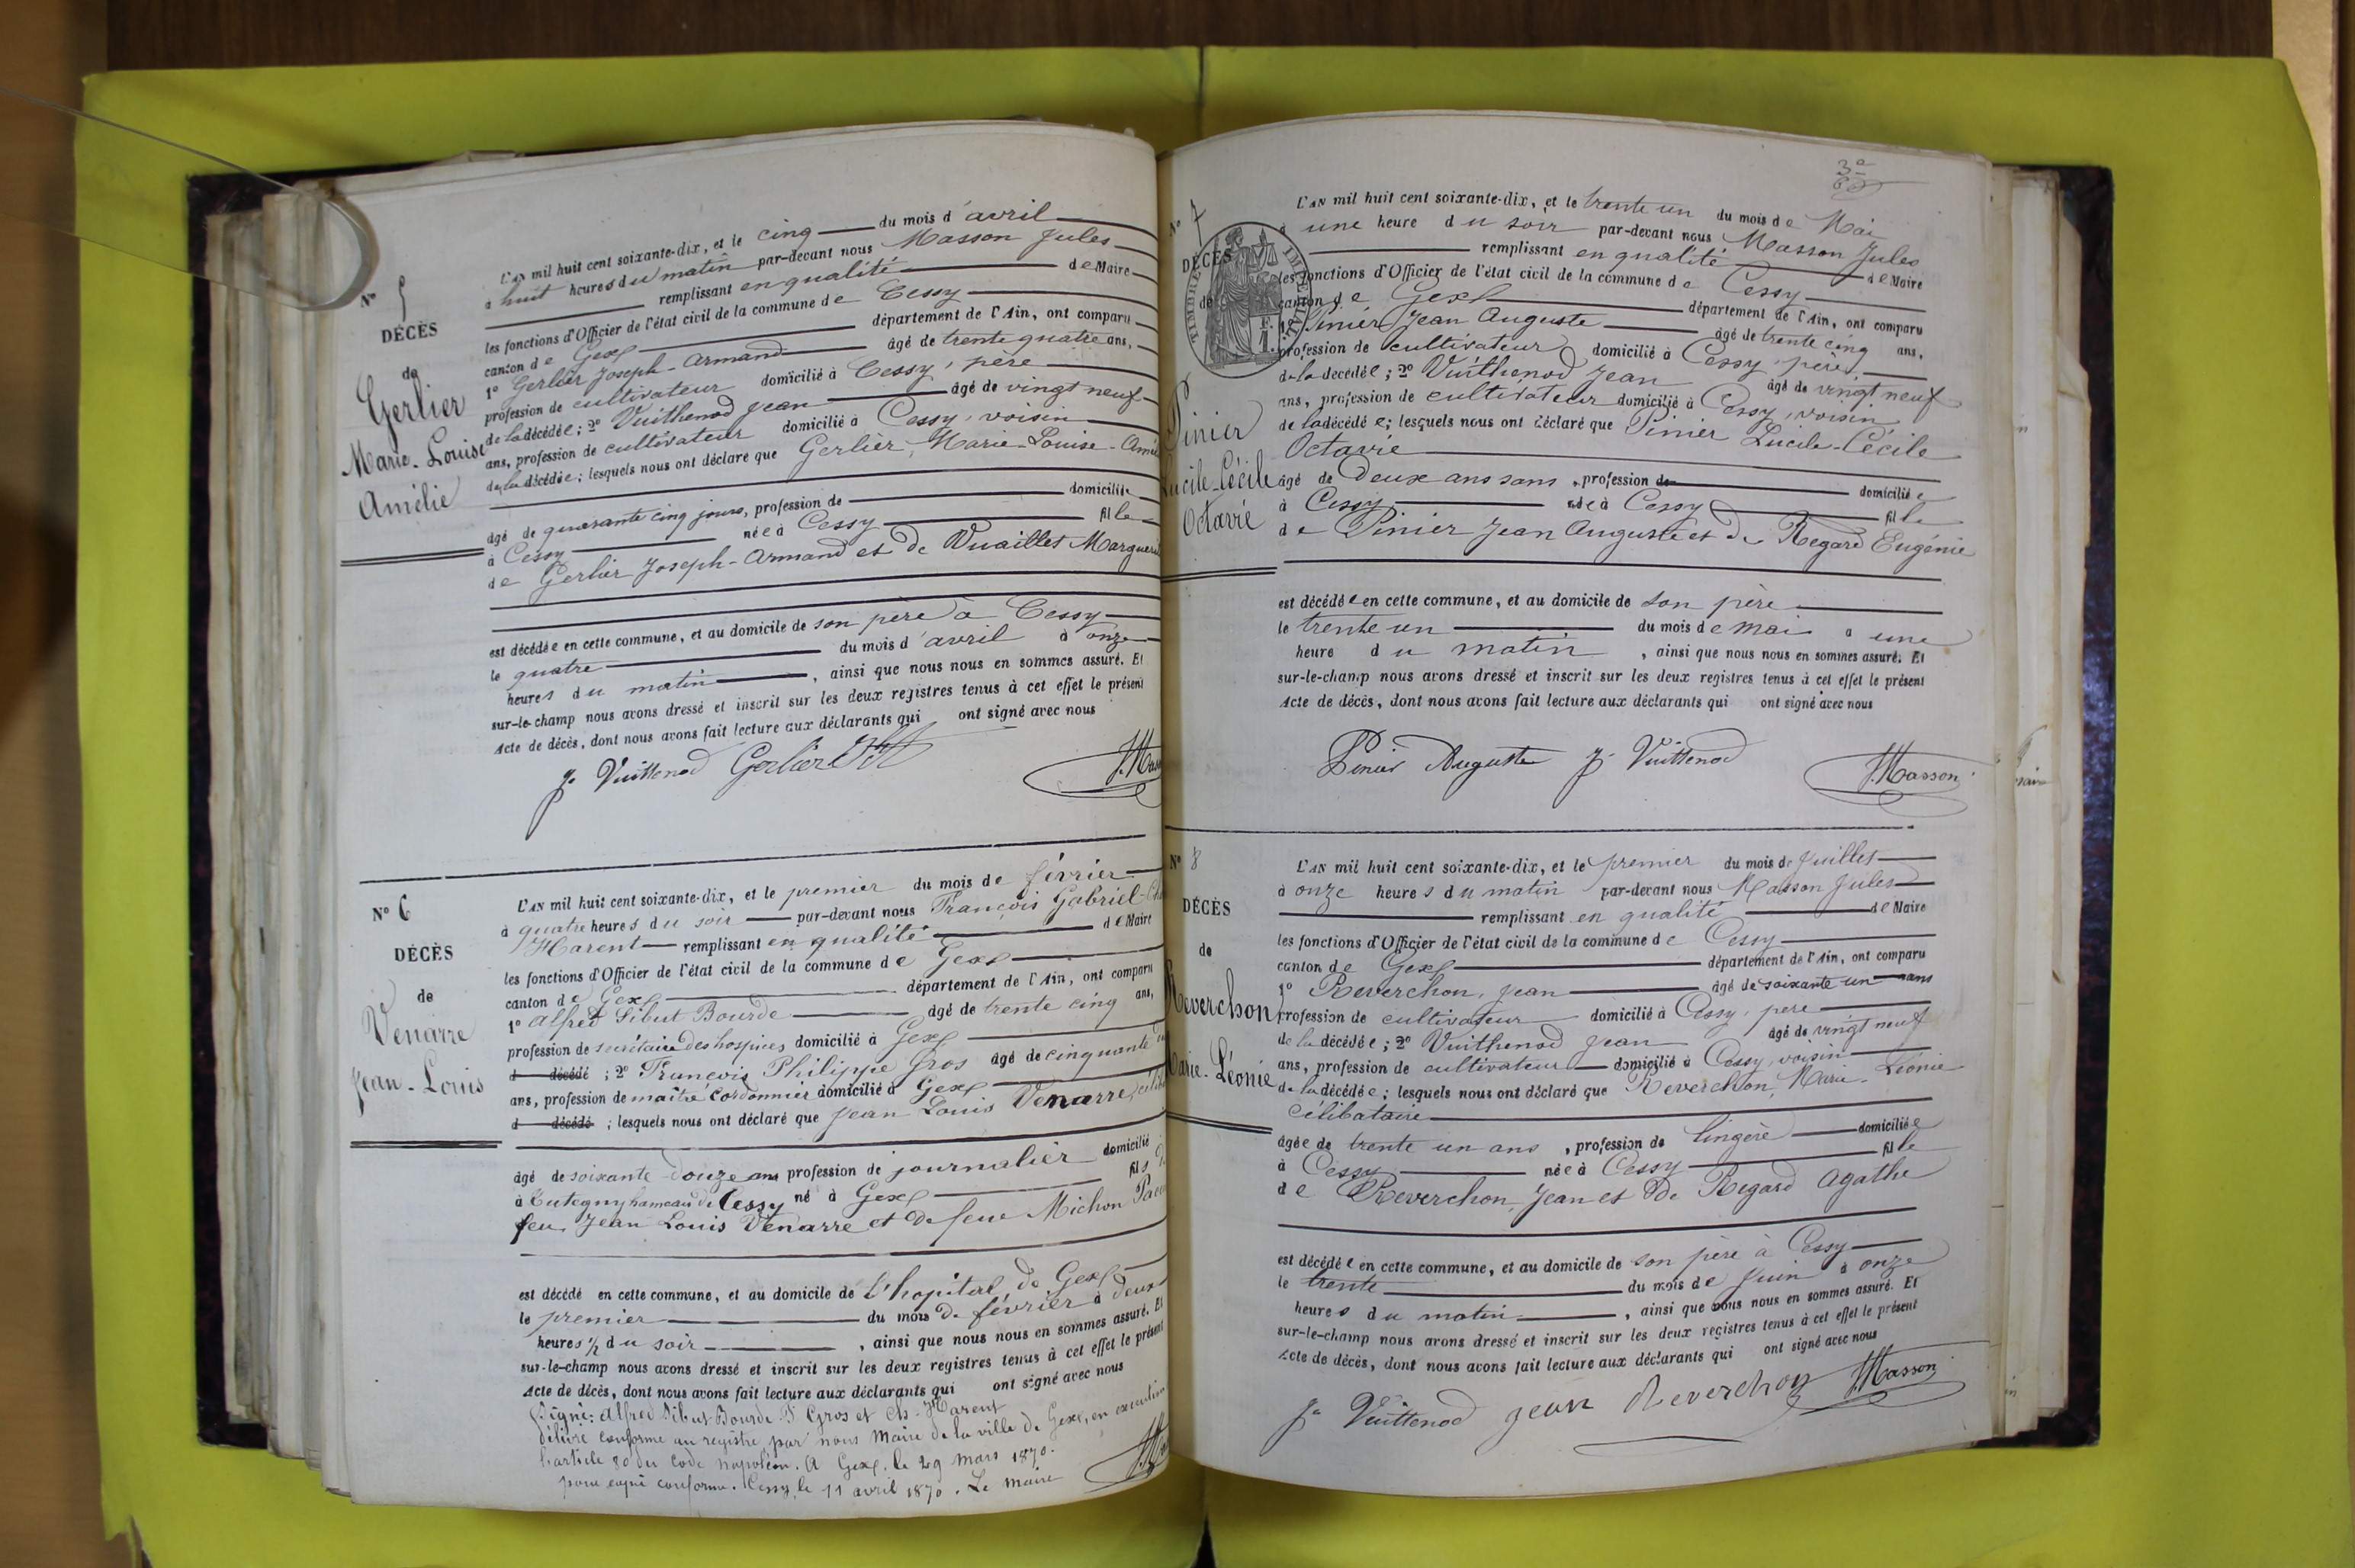 N° 5
DÉCÈS
de
Gerlier
Marie-Louise
Amélie
L'AN mil huit cent soixante-dix, et le cinq du mois d'avril
à huit heures du matin par-devant nous Masson Jules
remplissant en qualité de Maire
les fonctions d'Officier de l'état civil de la commune de Cessy
canton de Gex département de l'Ain, ont comparu
1° Gerlier Joseph-Armand âgé de trente quatre ans,
profession de cultivateur domicilié à Cessy, père
de la décédée; 2° Vuithenod Jean âgé de vingt neuf
ans, profession de cultivateur domicilié à Cessy, voisin
de la décédée; lesquels nous ont déclaré que Gerlier, Marie-Louise-Amé
âgé de quarante cinq jours, profession de domiciliée
à Cessy née à Cessy fille
de Gerlier Joseph-Armand et de Vuaillet Marguerit
est décédée en cette commune, et au domicile de son père à Cessy
le quatre du mois d'avril à onze
heures du matin, ainsi que nous nous en sommes assuré. Et
sur-le-champ nous avons dressé et inscrit sur les deux registres tenus à cet effet le présent
Acte de décès, dont nous avons fait lecture aux déclarants qui ont signé avec nous
Je Vuittenod Gerlier JHMass
N° 6
DÉCÈS
de
Venarre
Jean-Louis
L'AN mil huit cent soixante-dix, et le premier du mois de février
à quatre heures du soir par-devant nous François Gabriel
Harent remplissant en qualité de Maire
les fonctions d'Officier de l'état civil de la commune de Gex
canton de Gex département de l'Ain, ont comparu
1° Alfred Sibut Bourde âgé de trente cinq ans,
profession de secrétaire des hospices domicilié à Gex
d décédé; 2° François Philippe Gros âgé de cinquante
ans, profession de maître cordonnier domicilié à Gex
d décédé; lesquels nous ont déclaré que Jean Louis Venarre, céliba
âgé de soixante douze ans profession de journalier domicilié
à Tutegny hameau de Cessy né à Gex fils d
feu Jean Louis Venarre et de feue Michon
est décédé en cette commune, et au domicile de l'hopital de Gex
le premier du mois de février à deux
heures ½ du soir, ainsi que nous nous en sommes assuré. Et
sur-le-champ nous avons dressé et inscrit sur les deux registres tenus à cet effet le présent
Acte de décès, dont nous avons fait lecture aux déclarants qui ont signé avec nous
Signé: Alfred Sibut Bourde P. Gros et Ch. Harent
Délivré conforme au registre par nous Maire de la ville de Gex, en execution
l'article 80 du Code Napoléon. A Gex, le 29 mars 1870.
pour copie conforme. Cessy, le 11 avril 1870. Le maire
N° 7
DÉCÈS
de
TIMBRE IMPÉRIAL
1 F.
Pinier
Lucile-Cécile
Octavie
L'AN mil huit cent soixante-dix, et le trente un du mois de Mai
à une heure du soir par-devant nous Masson Jules
remplissant en qualité de Maire
les fonctions d'Officier de l'état civil de la commune de Cessy
canton de Gex département de l'Ain, ont comparu
1° Pinier Jean Auguste âgé de trente cinq ans,
profession de cultivateur domicilié à Cessy, père
de la décédée; 2° Vuithenod Jean âgé de vingt neuf
ans, profession de cultivateur domicilié à Cessy, voisin
de la décédée; lesquels nous ont déclaré que Pinier Lucile-Cécile
Octavie
âgé de deux ans sans, profession de domiciliée
à Cessy née à Cessy fille
de Pinier Jean Auguste et de Regard Eugénie
est décédée en cette commune, et au domicile de son père
le trente un du mois de mai à une
heure du matin, ainsi que nous nous en sommes assuré. Et
sur-le-champ nous avons dressé et inscrit sur les deux registres tenus à cet effet le présent
Acte de décès, dont nous avons fait lecture aux déclarants qui ont signé avec nous
Pinier Auguste Je Vuittenod JMasson
N° 8
DÉCÈS
de
Reverchon
Marie-Léonie
L'AN mil huit cent soixante-dix, et le premier du mois de Juillet
à onze heures du matin par-devant nous Masson Jules
remplissant en qualité de Maire
les fonctions d'Officier de l'état civil de la commune de Cessy
canton de Gex département de l'Ain, ont comparu
1° Reverchon, Jean âgé de soixante un ans
profession de cultivateur domicilié à Cessy, père
de la décédée; 2° Vuithenod Jean âgé de vingt neuf
ans, profession de cultivateur domicilié à Cessy, voisin
de la décédée; lesquels nous ont déclaré que Reverchon, Marie-Léonie
célibataire
âgée de trente un ans, profession de lingère domiciliée
à Cessy née à Cessy fille
de Reverchon, Jean et de Regard Agathe
est décédée en cette commune, et au domicile de son père à Cessy
le trente du mois de Juin à onze
heures du matin, ainsi que nous nous en sommes assuré. Et
sur-le-champ nous avons dressé et inscrit sur les deux registres tenus à cet effet le présent
Acte de décès, dont nous avons fait lecture aux déclarants qui ont signé avec nous
Je Vuittenod Jean Reverchon JMasson